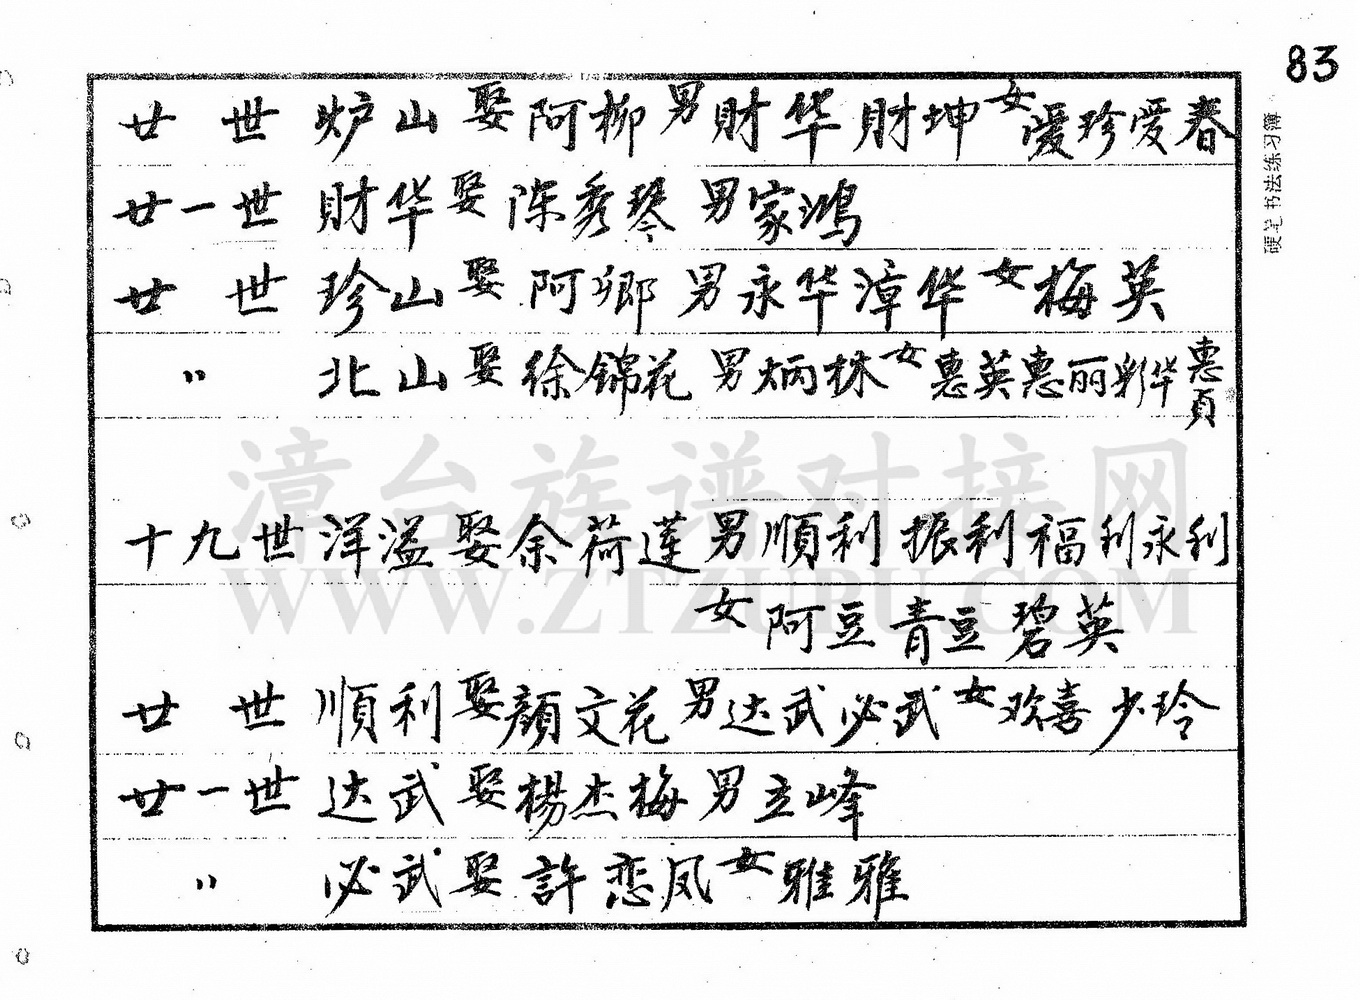 83
廿 世 炉山 娶 阿柳 男 財华 財坤 女 爱珍 爱春
廿一世 財华 娶 陈秀琴 男 家鸿
廿 世 珍山 娶 阿卿 男 永华 漳华 女 梅英
〃 北山 娶 徐锦花 男 炳林 女 惠英 惠丽 彩华 惠頁
十九世 洋溢 娶 余荷莲 男 順利 振利 福利 永利
女 阿豆 青豆 碧英
廿 世 順利 娶 顏文花 男 达武 必武 女 欢喜 少玲
廿一世 达武 娶 楊杰梅 男 立峰
〃 必武 娶 許恋凤 女 雅雅
硬笔书法练习簿
漳台族谱对接网
WWW.ZTZUPU.COM